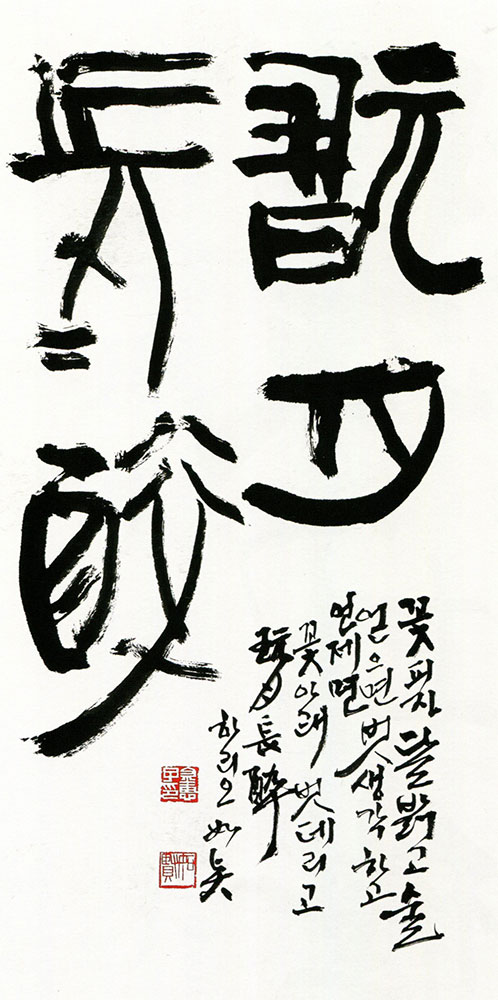 翫月
長醉
꽃피자 달 밝고 술
얻으면 벗 생각하고
언제면
꽃 아래 벗 데리고
玩月長醉
하리오